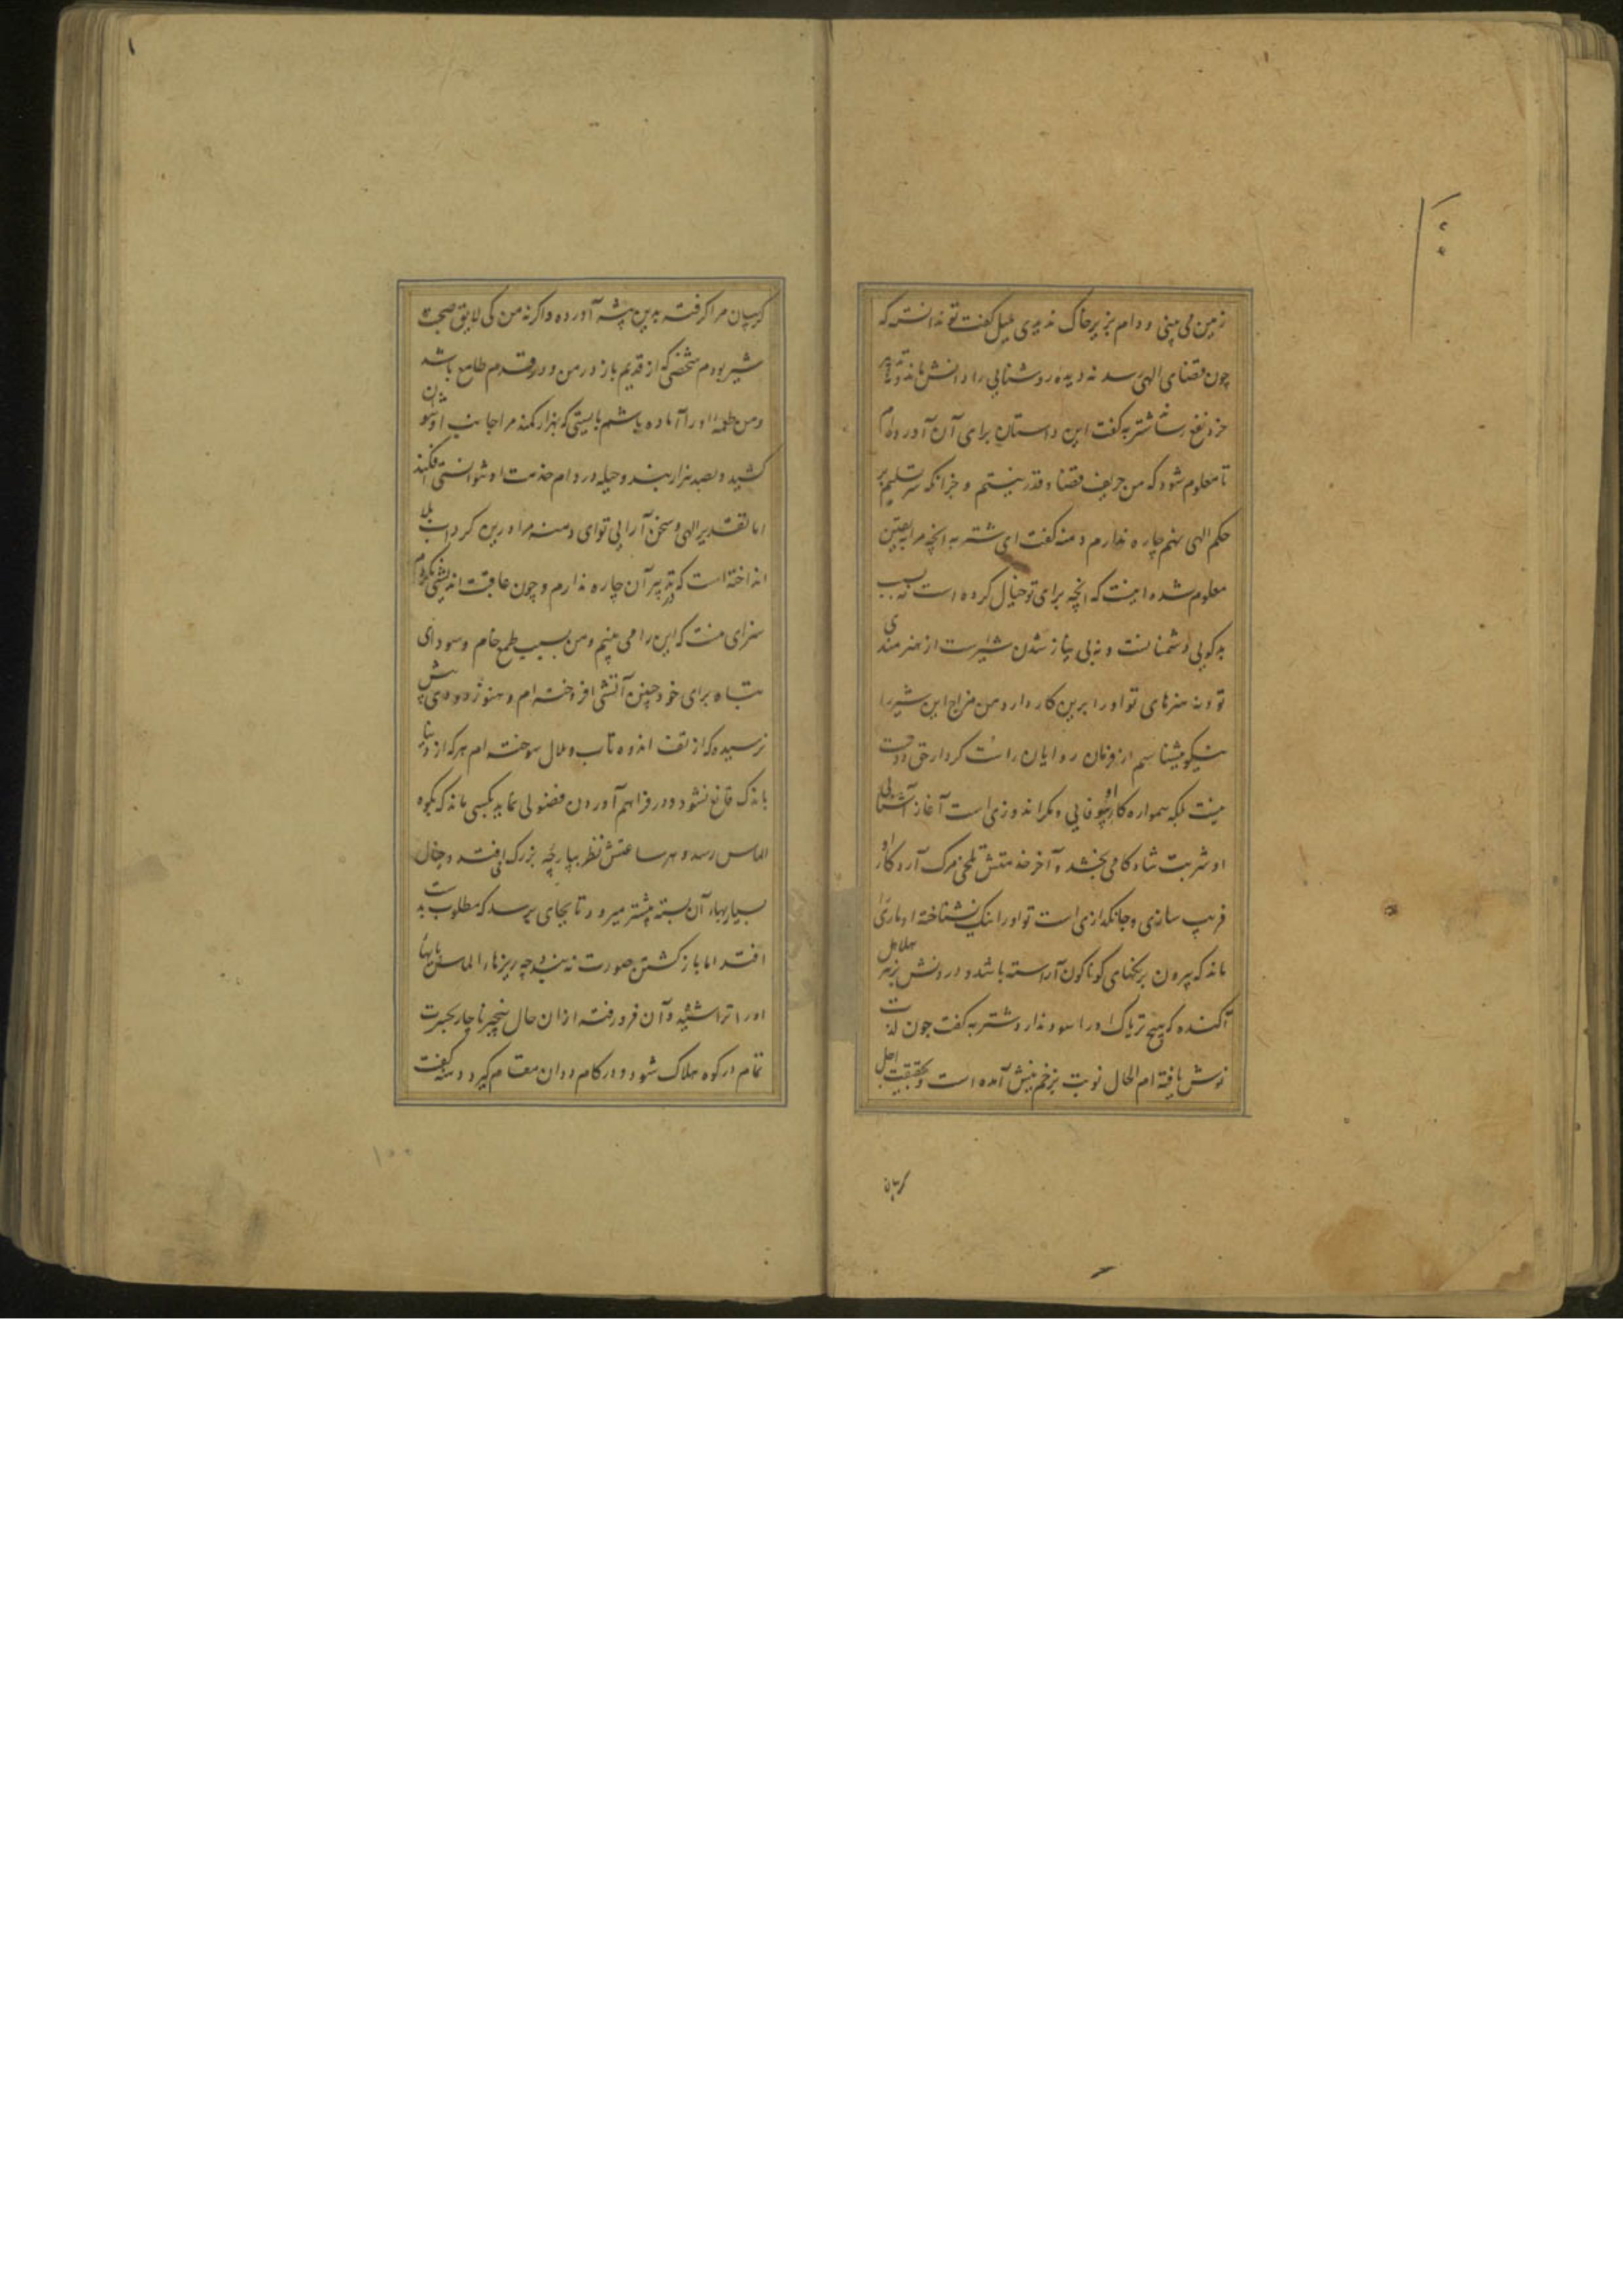 زمین می بینی و دام بزیر خاک ندیدی غلیل گفت تو ندانسته که
چون قضای الهی رسد نه دیده روشنایی را و دانش ماند و نه تدبیر
خرد نفع رساند شتربه گفت این داستان برای آن آوردم
تا معلوم شود که من حریف قضا و قدر نیستم و جز آنکه سر تسلیم بر
حکم الهی نهم چاره ندارم دمنه گفت ای شتربه آنچه مرا به یقین
معلوم شده اینست که آنچه برای تو خیال کرده است نه بسبب
بدگویی دشمنانست و نه بی نیاز شدن شیرست از هنرمندی
تو و نه هنرهای تو او را برین کار دارد من مزاج این شیر را
نیکو میشناسم از فرمان روایان راست کردار حق دوست
نیست بلکه همواره کار او بیوفایی و مکر اندوزی است آغاز آشنایی
او شربت شادکامی بخشد و آخر خدمتش تلخی مرگ آرد کار او
فریب سازی و جانگدازی است تو او را نیک نشناخته او ماری را
ماند که بیرون برنگهای گوناگون آراسته باشد و درونش بزهر هلاهل
آکنده که هیچ تریاک او را سود ندارد شتربه گفت چون لذت
نوش یافته ام الحال نوبت زخم نیش آمده است و بحقیقت اجل
گریبان
گریبان مرا گرفته بدین بیشه آورده و اگر نه من کی لایق صحبت
شیر بودم شخصی که از قدیم باز در من و در قدم طامع باشد
و من طعمه او را آماده باشم بایستی که بهزار کمند مرا جانب او نتوان
کشید و بصد هزار بند و حیله در دام خدمت او نتوانستی افکند
اما تقدیر الهی و سخن آرایی تو ای دمنه مرا درین گرداب بلا
انداخته است که در تدبیر آن چاره ندارم و چون عاقبت اندیشی نکردم
سزای منست که این را می بینم و من بسبب طمع خام و سودای
تباه برای خود چنین آتشی افروخته ام و هنوز دودی پیش
نرسیده که از تف اندوه تاب و ملال سوخته ام هر که از دنیا
باندک قانع نشود و در فراهم آوردن فضولی نماید بکسی ماند که بکوه
الماس رسد و هر ساعتش نظر بپارچه بزرگ افتد و بخیال
بسیار بهاء آن بسته پیشتر میرود تا بجای برسد که مطلوب بدست
افتد اما باز گشتن صورت نه بندد چه ریزهاء الماس پایهای
او را تراشیده و آن فرو رفته از ان حال بیخبر ناچار بحسرت
تمام در کوه هلاک شود و در کام ددان مقام گیرد دمنه گفت
۱۰۰